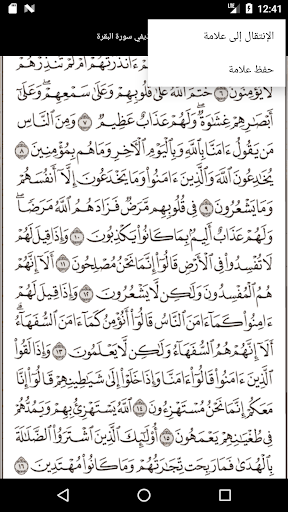 12:41
الإنتقال إلى علامة
ذيفي سورة البقرة
حفظ علامة
ءَأَنذَرْتَهُمْ أَمْ لَمْ تُنذِرْهُمْ
لَا يُؤْمِنُونَ ٦ خَتَمَ ٱللَّهُ عَلَىٰ قُلُوبِهِمْ وَعَلَىٰ سَمْعِهِمْ ۖ وَعَلَىٰٓ
أَبْصَٰرِهِمْ غِشَٰوَةٌ ۖ وَلَهُمْ عَذَابٌ عَظِيمٌ ٧ وَمِنَ ٱلنَّاسِ
مَن يَقُولُ ءَامَنَّا بِٱللَّهِ وَبِٱلْيَوْمِ ٱلْءَاخِرِ وَمَا هُم بِمُؤْمِنِينَ ٨
يُخَٰدِعُونَ ٱللَّهَ وَٱلَّذِينَ ءَامَنُوا۟ وَمَا يَخْدَعُونَ إِلَّآ أَنفُسَهُمْ
وَمَا يَشْعُرُونَ ٩ فِى قُلُوبِهِم مَّرَضٌ فَزَادَهُمُ ٱللَّهُ مَرَضًا ۖ
وَلَهُمْ عَذَابٌ أَلِيمٌۢ بِمَا كَانُوا۟ يَكْذِبُونَ ١٠ وَإِذَا قِيلَ لَهُمْ
لَا تُفْسِدُوا۟ فِى ٱلْأَرْضِ قَالُوٓا۟ إِنَّمَا نَحْنُ مُصْلِحُونَ ١١ أَلَآ إِنَّهُمْ
هُمُ ٱلْمُفْسِدُونَ وَلَٰكِن لَّا يَشْعُرُونَ ١٢ وَإِذَا قِيلَ لَهُمْ
ءَامِنُوا۟ كَمَآ ءَامَنَ ٱلنَّاسُ قَالُوٓا۟ أَنُؤْمِنُ كَمَآ ءَامَنَ ٱلسُّفَهَآءُ ۗ
أَلَآ إِنَّهُمْ هُمُ ٱلسُّفَهَآءُ وَلَٰكِن لَّا يَعْلَمُونَ ١٣ وَإِذَا لَقُوا۟
ٱلَّذِينَ ءَامَنُوا۟ قَالُوٓا۟ ءَامَنَّا وَإِذَا خَلَوْا۟ إِلَىٰ شَيَٰطِينِهِمْ قَالُوٓا۟ إِنَّا
مَعَكُمْ إِنَّمَا نَحْنُ مُسْتَهْزِءُونَ ١٤ ٱللَّهُ يَسْتَهْزِئُ بِهِمْ وَيَمُدُّهُمْ
فِى طُغْيَٰنِهِمْ يَعْمَهُونَ ١٥ أُو۟لَٰٓئِكَ ٱلَّذِينَ ٱشْتَرَوُا۟ ٱلضَّلَٰلَةَ
بِٱلْهُدَىٰ فَمَا رَبِحَت تِّجَٰرَتُهُمْ وَمَا كَانُوا۟ مُهْتَدِينَ ١٦